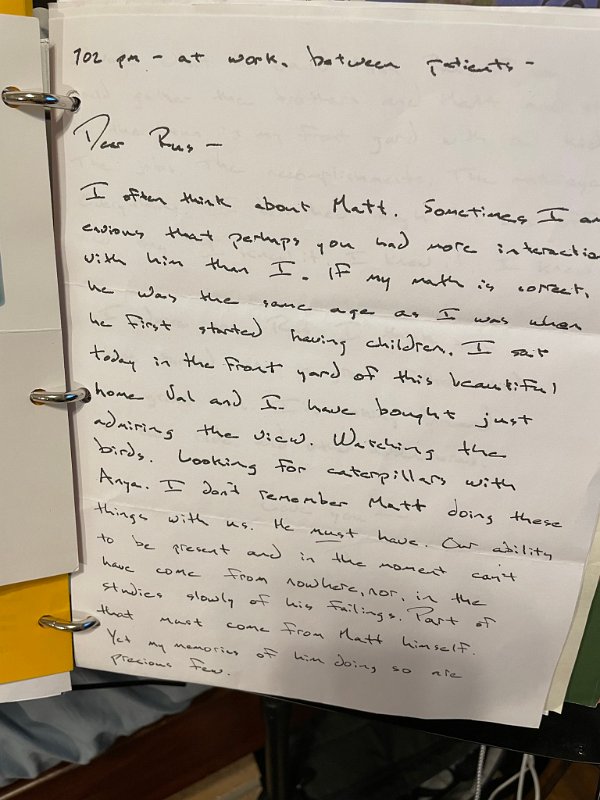 702 pm - at work, between patients -
Dear Rus -
I often think about Matt. Sometimes I am
envious that perhaps you had more interaction
with him than I. If my math is correct,
he was the same age as I was when
he first started having children. I sat
today in the front yard of this beautiful
home Val and I have bought just
admiring the view. Watching the
birds. Looking for caterpillars with
Anya. I don't remember Matt doing these
things with us. He must have. Our ability
to be present and in the moment can't
have come from nowhere, nor, in the
studies slowly of his failings. Part of
that must come from Matt himself.
Yet my memories of him doing so are
precious few.